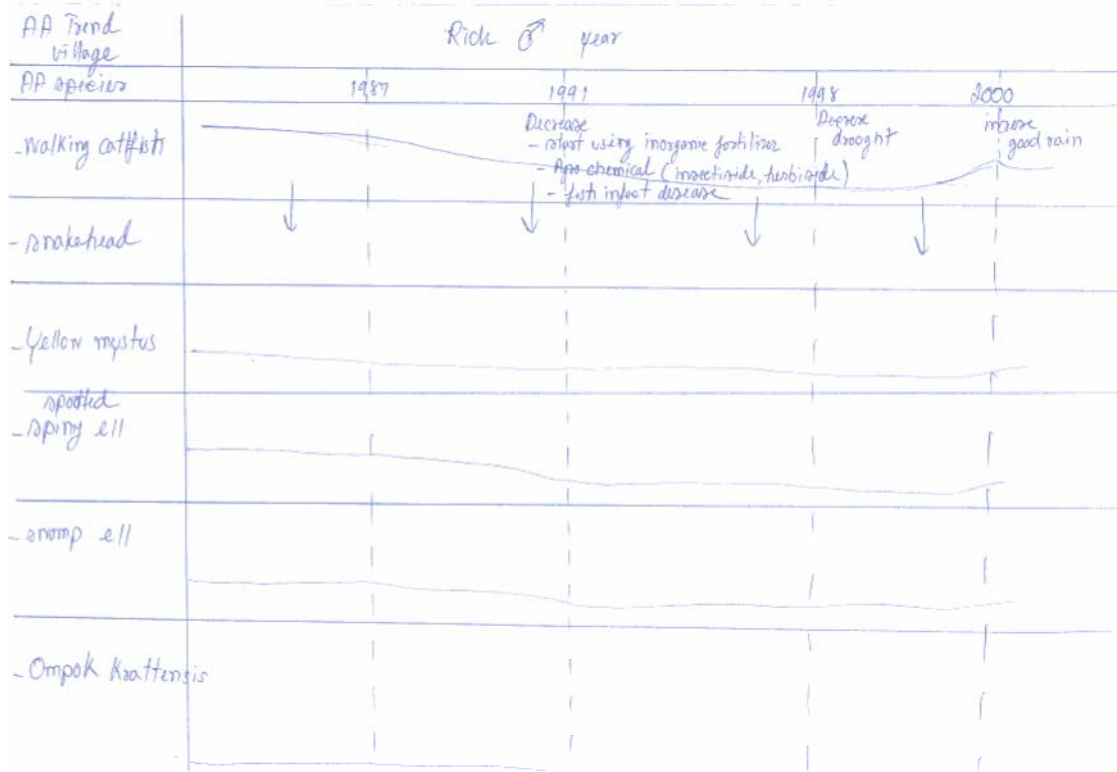 AA Trend
village
Rich ♂ year
AA species
1987 1991 1998 2000
- Walking catfish
Decrease
- start using inorganic fertilizer
- Agro chemical (insecticide, herbicide)
- fish infect disease
drought
good rain
- snakehead
- Yellow mystus
spotted
- spiny ell
ell
- Ompok Krattensis